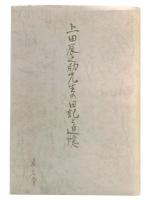 上田辰之助先生の日記と追憶